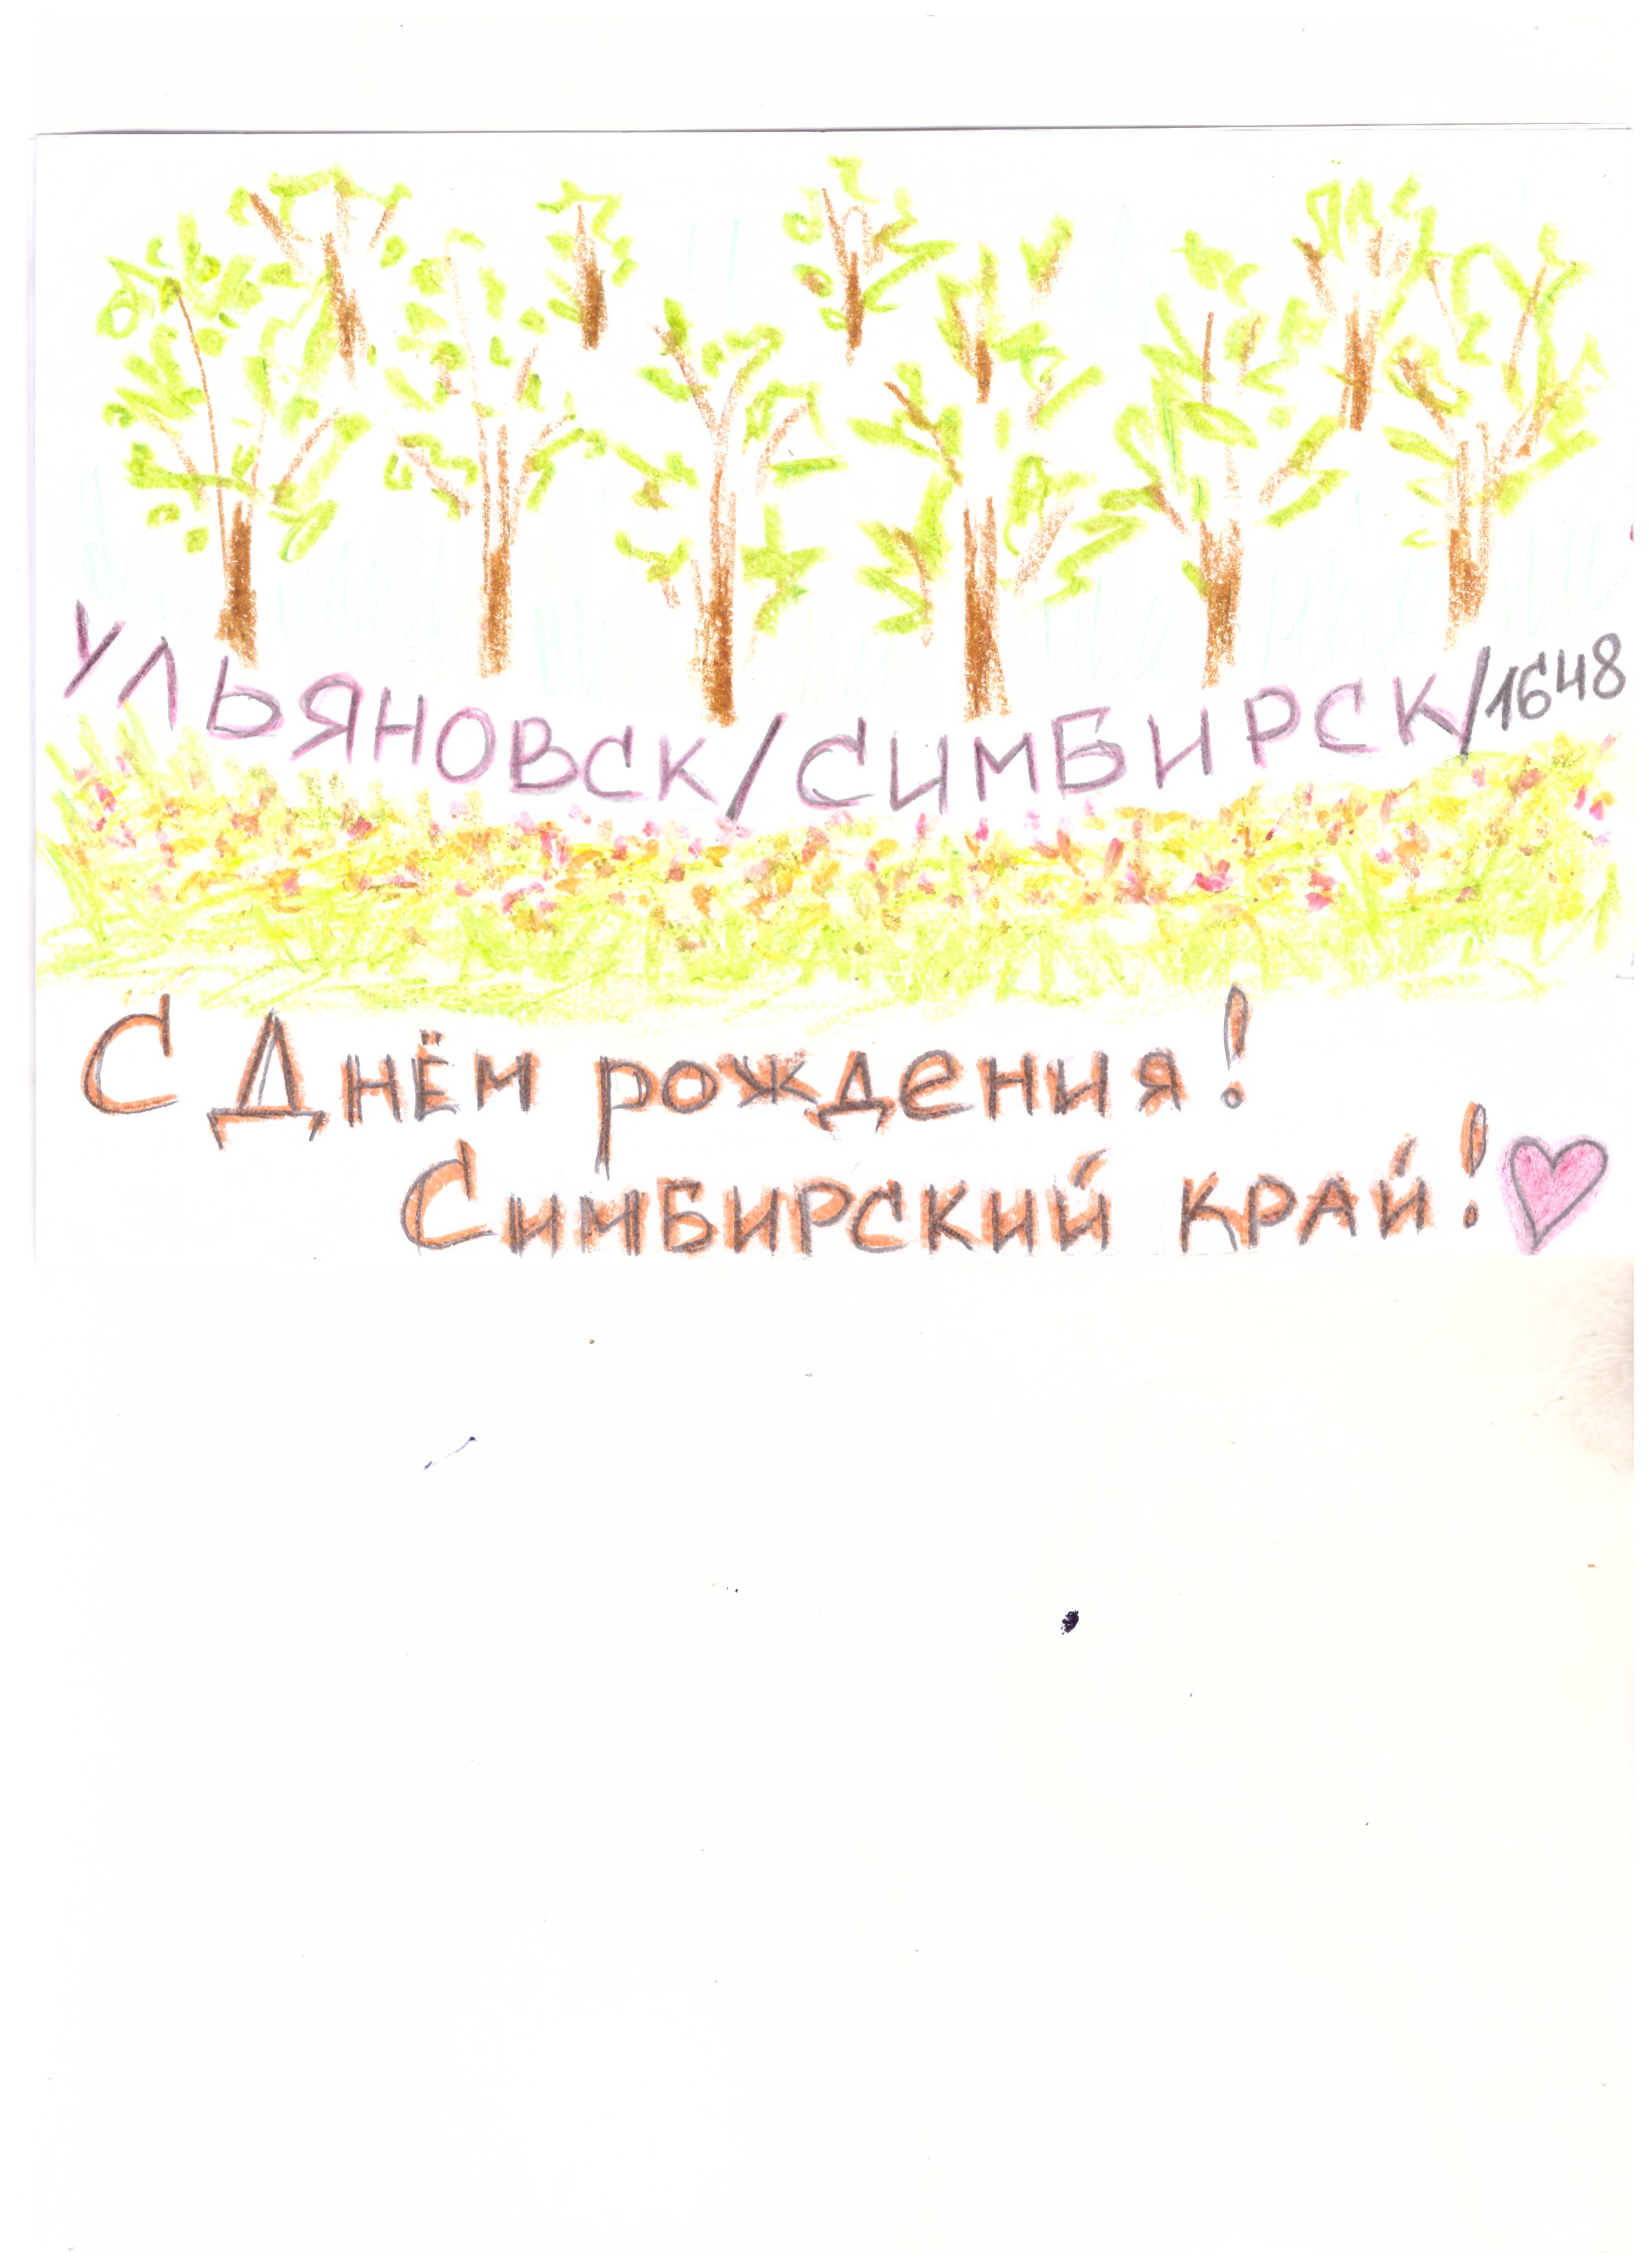 УЛЬЯНОВСК/СИМБИРСК/1648
С Днём рождения!
Симбирский край!